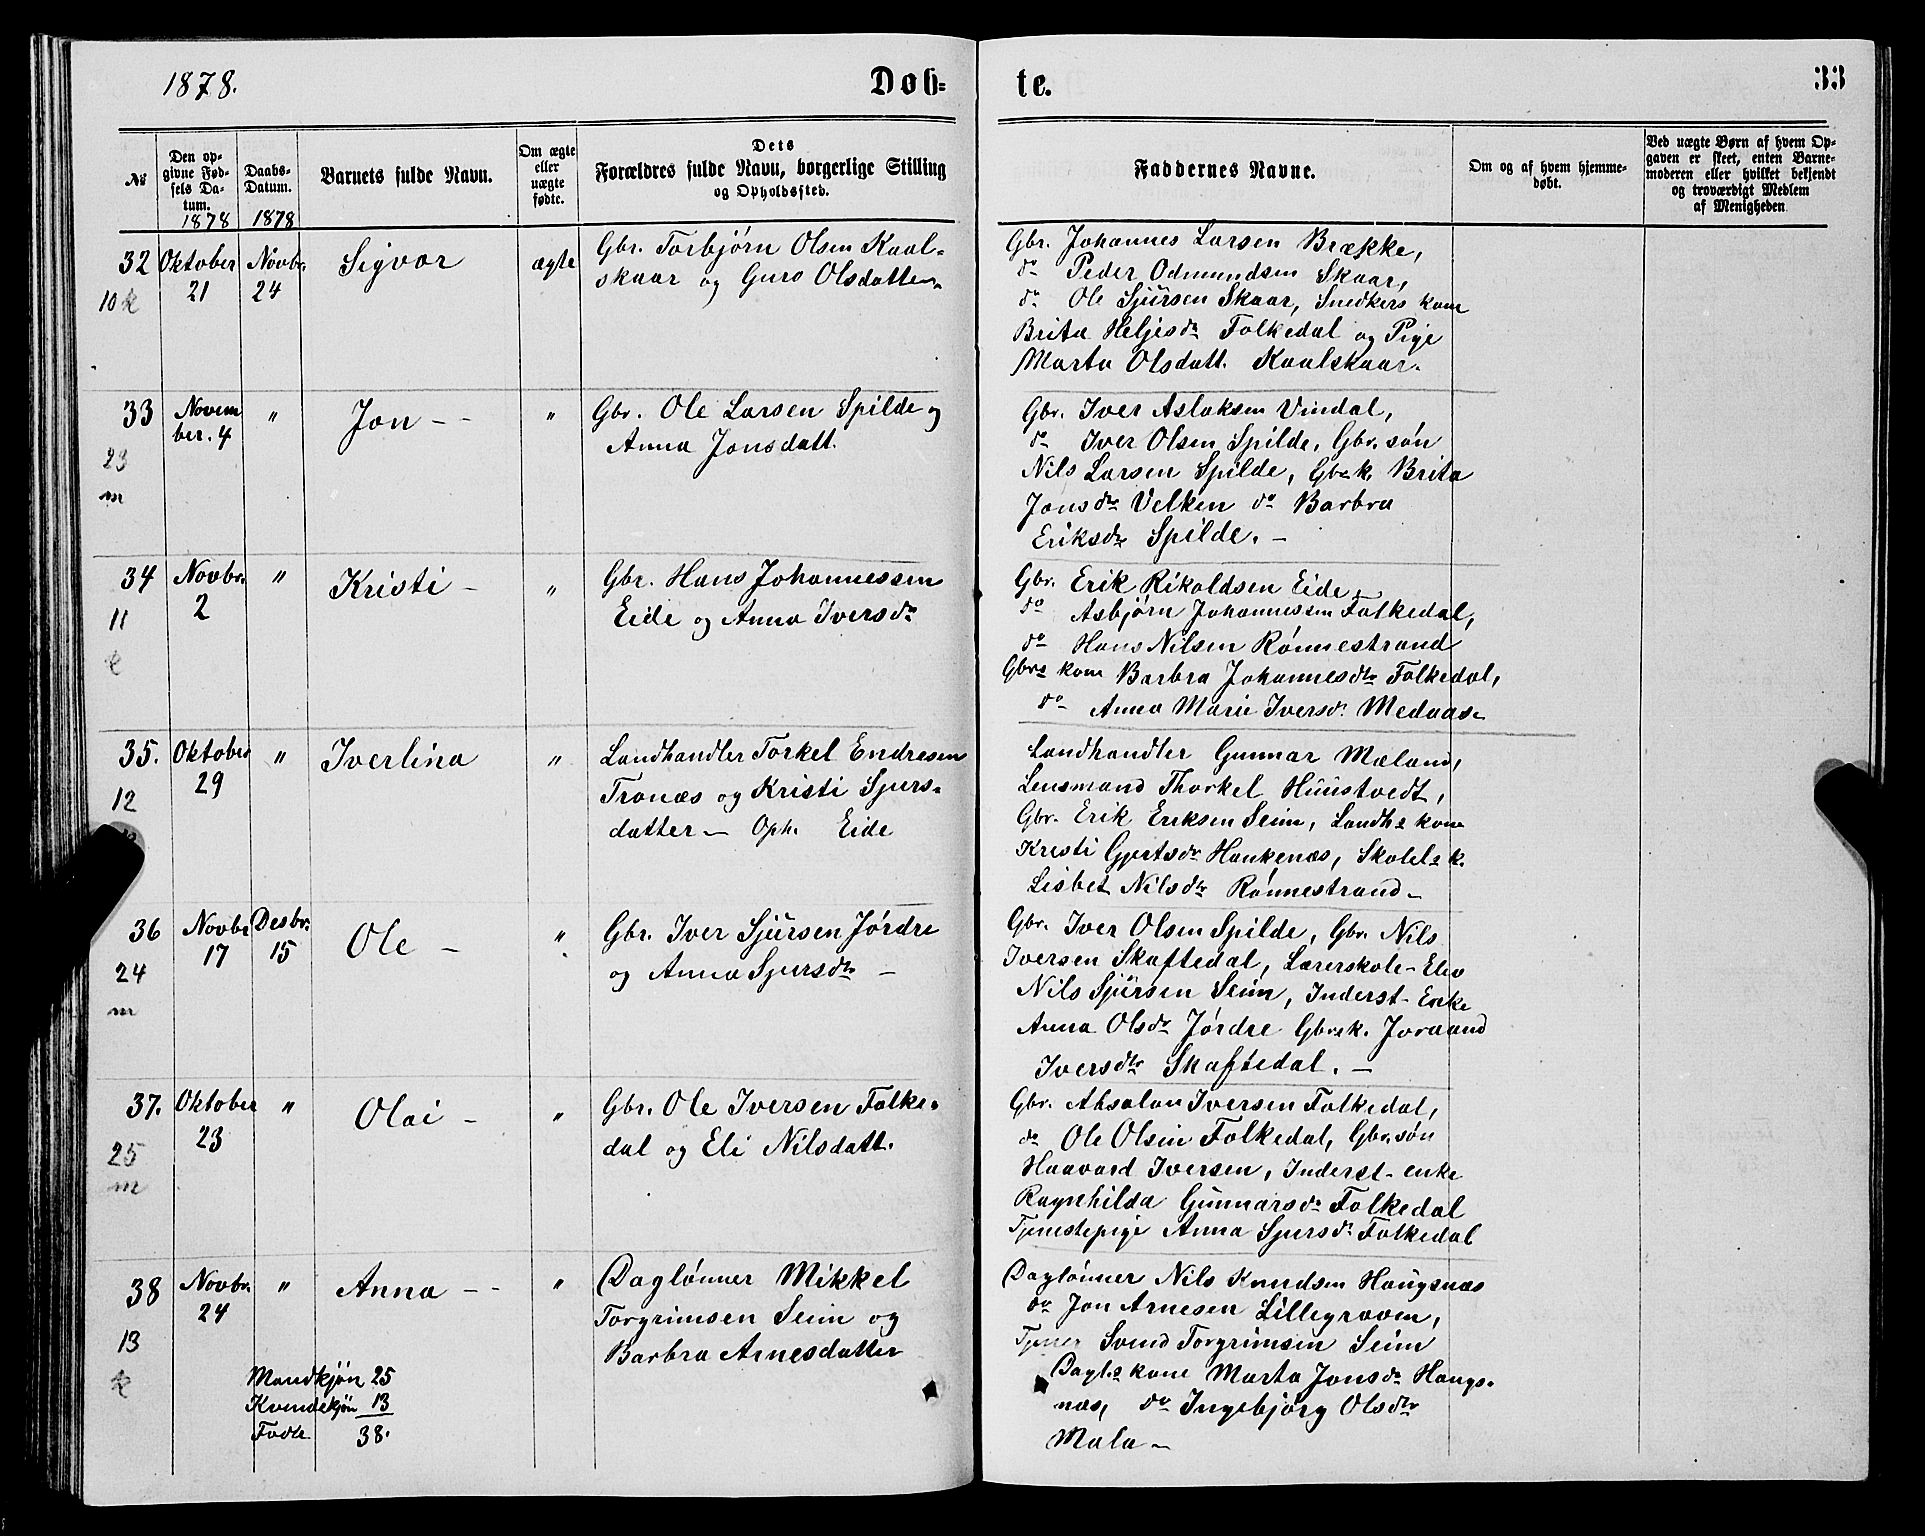 1878.
Døb=
te.
33
№
Den op-
givne Fød-
sels Da-
tum.
1878
Daabs-
Datum.
1878
Barnets fulde Navn.
Om ægte
eller
uægte
fødte.
Dets
Forældres fulde Navn, borgerlige Stilling
og Opholdssted.
Faddernes Navne.
Om og af hvem hjemme-
døbt.
Ved uægte Børn af hvem Op-
gaven er skeet, enten Barne-
moderen eller hvilket bekjendt
og troværdigt Medlem
af Menigheden
32
10 k
Oktober
21
Novbr.
24
Sigvor
ægte
Gbr. Torbjørn Olsen Kaal-
skaar og Guro Olsdatter
Gbr. Johannes Larsen Brække,
do Peder Odmundsen Skaar,
do Ole Sjursen Skaar, Snedkers kone
Brita Heljesdr Folkedal og Pige
Marta Olsdatt. Kaalskaar.
33
23
m
Novem
ber. 4
"
Jon - -
"
Gbr. Ole Larsen Spilde og
Anna Jonsdatt.
Gbr. Iver Aslaksen Vindal,
do Iver Olsen Spilde, Gbr. søn
Nils Larsen Spilde, Gbr.k. Brita
Jonsdtr Velken do Barbra
Eriksdtr Spilde. -
34
11
k
Novbr.
2
"
Kristi -
"
Gbr. Hans Johannessen
Eide og Anna Iversdr
Gbr. Erik Rikoldsen Eide,
do Asbjørn Johannessen Folkedal,
do Hans Nilsen Rønnestrand
Gbrs kone Barbra Johannesdtr Folkedal,
do Anna Marie Iversdr. Medaas-
35.
12
Oktober
29
"
Iverlina
"
Landhandler Torkel Endresen
Tronæs og Kristi Sjurs-
datter - Oph. Eide
Landhandler Gunnar Mæland,
Lensmand Thorkel Huustvedt,
Gbr. Erik Eriksen Seim, Landhs kone
Kristi Gjertsdr Hankenæs, Skolels k.
Lisbet Nilsdtr Rønnestrand -
36
24
m
Novbr
17
Desbr.
15
Ole -
"
Gbr. Iver Sjursen Jørdre
og Anna Sjursdtr -
Gbr. Iver Olsen Spilde, Gbr. Nils
Iversen Skaftedal, Lærerskole-Elev
Nils Sjursen Seim, Inderst-Enke
Anna Olsdr Jørdre Gbrsk. Joraand
Iversdtr Skaftedal. -
37.
25
m
Oktober
23
"
Olai -
"
Gbr. Ole Iversen Folke-
dal og Eli Nilsdatt.
Gbr. Absalon Iversen Folkedal,
do Ole Olsen Folkedal, Gbr. søn
Haavard Iversen, Inderst-enke
Ragnhilda Gunnarsdr Folkedal
Tjenestepige Anna Sjursdr. Folkedal
38
13
k
Novbr.
24
"
Anna - -
"
Daglønner Mikkel
Torgrimsen Seim og
Barbra Arnesdatter
Daglønner Nils Knudsen Haugsnæs
do Jon Arnesen Lillegraven,
Tjener Svend Torgrimsen Seim
Dagl.s kone Marta Jonsdr Haugs-
næs, do Ingebjørg Olsdtr
Mala -
Mandkjøn 25
Kvindekjøn 13
Fødte 38.